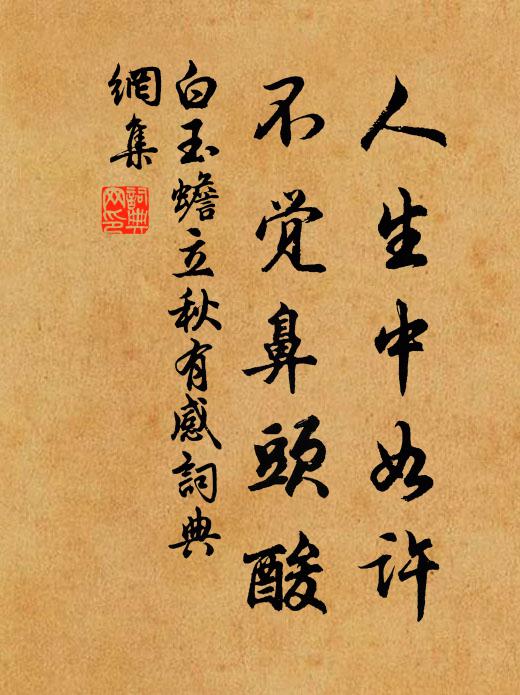 人生中如许
不觉鼻頭酸
白玉蟾立秋有感詞典
網集
詞典網印